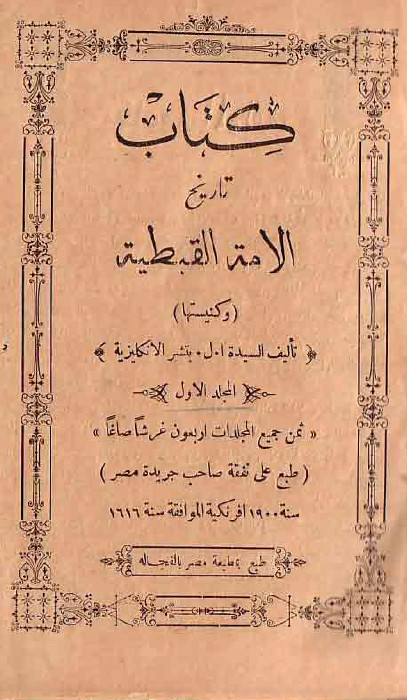 كِتَابْ
تاريخ
الامة القبطية
(وكنيستها)
﴿ تأليف السيدة ا٠ل٠ بتشر الانكليزية ﴾
المجلد الاول
« ثمن جميع المجلدات اربعون غرشاً صاغاً »
( طبع على نفقة صاحب جريدة مصر )
سنة ١٩٠٠ افرنكية الموافقة سنة ١٦١٦
طبع بمطبعة مصر بالفجاله